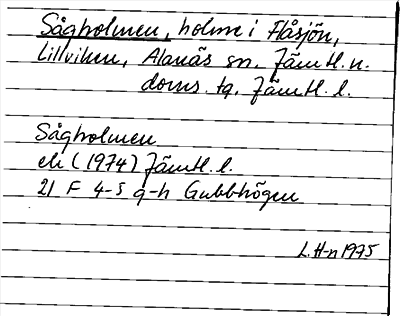 Sågholmen, holme i Flåsjön,
Lillviken, Alanäs sn. Jämtl. n.
doms. tg. Jämtl. l.
Sågholmen
ek (1974) Jämtl. l.
21 F 4-5 g-h Gubbhögen
L. H-n 1975